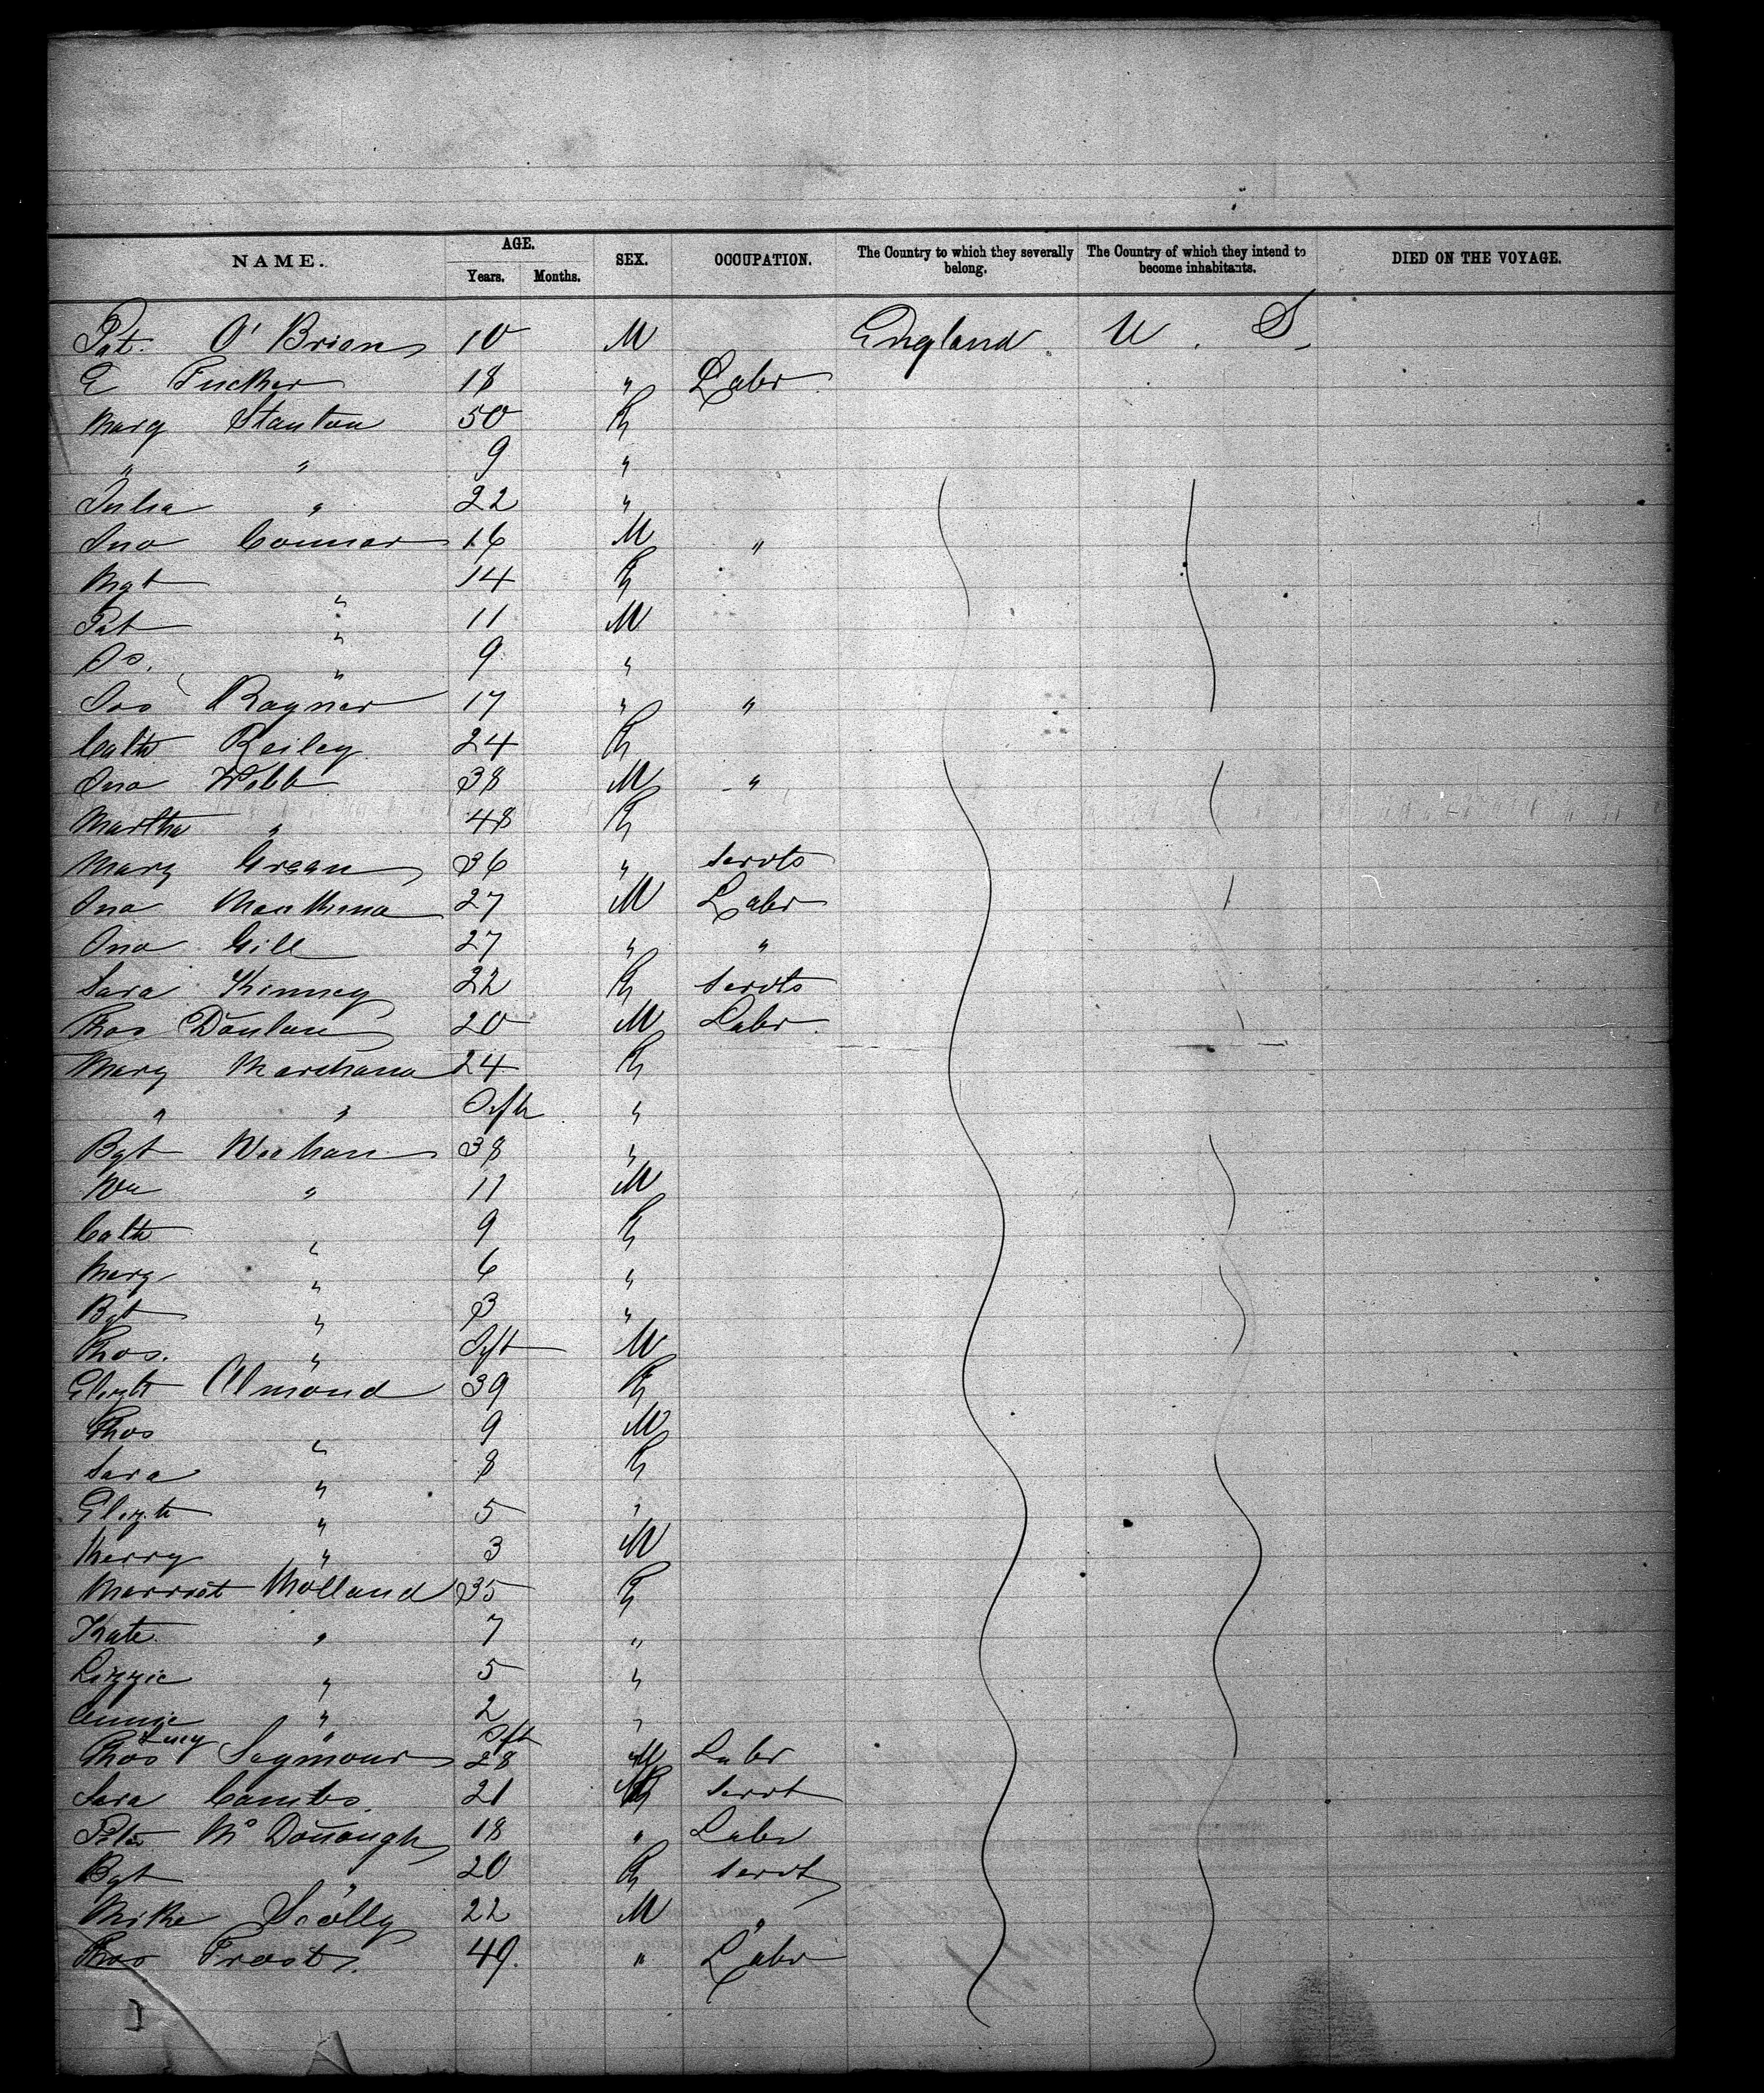 NAME. AGE. SEX. OCCUPATION. The Country to which they severally belong. The Country of which they intend to become inhabitants. DIED ON THE VOYAGE.
Years. Months.
Pat. O'Brien 10 M England U. S.
E Tucker 18 " Labr
Marg Stanton 50 F
" " 9 "
Julia " 22 "
Jno Connor 16 M "
Mgt " 14 F
Pat " 11 M
Js. " 9 "
Jos Rayner 17 " "
Cath Reiley 24 F
Jno Webb 38 M "
Martha " 48 F
Mary Green 36 " Servts
Jno 27 M Labr
Jno Gill 27 " "
Sara Kinney 22 F Servts
Thos Donlan 20 M Labr
Mary 24 F
" " Inft "
Bgt Meehan 38 "
Wm " 11 M
Cath " 9 F
Marg " 6 "
Bgt " 3 "
Thos. " Inft M
Elizth Almond 39 F
Thos " 9 M
Sara " 8 F
Elizth " 5 "
Henry " 3 M
Harriet Holland 35 F
Kate " 7 "
Lizzie " 5 "
Annie " 2 "
Lucy " Inft "
Thos Seymour 28 M Labr
Sara Combs 21 F Servt
Peter McDonough 18 " Labr
Bgt " 20 F Servt
Mike Scolly 22 M "
Thos Frost 49. " Labr